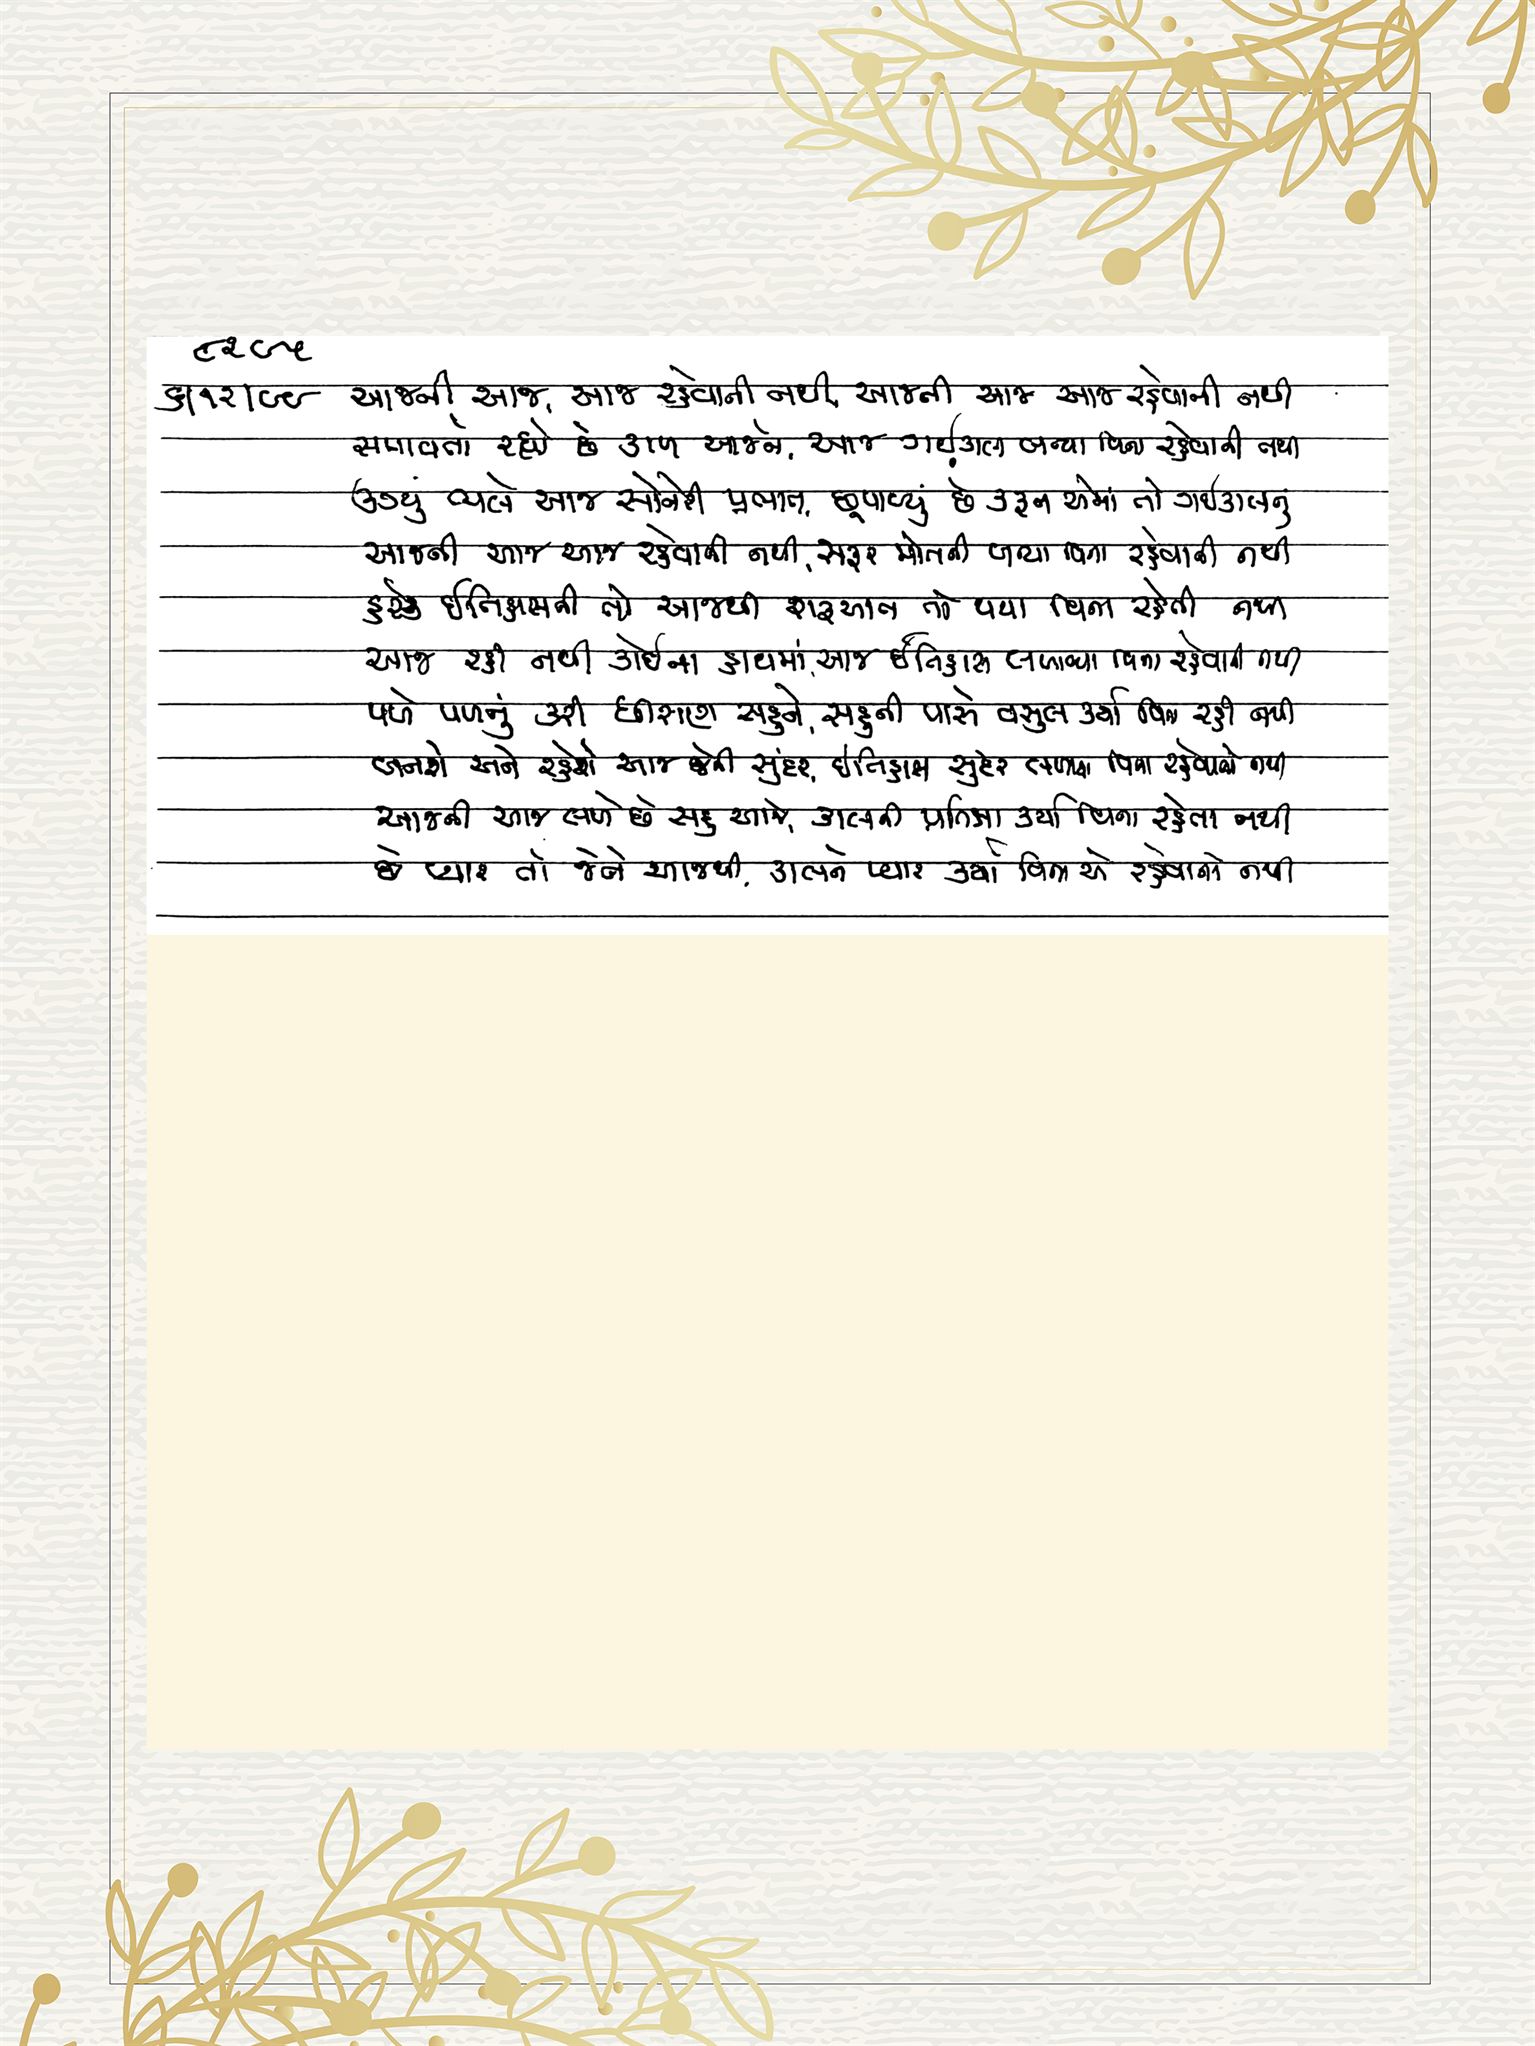 ૮૨૯૫
૬|૧૨|૯૯ આજની આજ, આજ રહેવાની નથી, આજની આજ આજ રહેવાની નથી
સમાવતો રહ્યો છે કાળ આજને, આજ ગઈકાલ બન્યા વિના રહેવાની નથી
ઉગ્યું ભલે આજ સોનેરી પ્રભાત, છૂપાવ્યું છે કરૂન એમાં તો ગઈકાલનું
આજની આજ આજ રહેવાની નથી, બન્યા વિના રહેવાની નથી
હરેક ઈતિહાસની તો આજથી શરૂઆત તો થયા વિના રહેતી નથી
આજ રહી નથી કોઈના હાથમાં, આજ ઈતિહાસ બનાવ્યા વિના રહેવાની નથી
પળે પળનું કરી સહુને, સહુની પાસે વસુલ કર્યા વિના રહી નથી
બનશે અને રહેશે આજ જેની સુંદર, ઈતિહાસ સુંદર વિના રહેવાનો નથી
આજની આજ છે સહુ આજે, કાલની પ્રતિક્ષા કર્યા વિના રહેતા નથી
છે પ્યાર તો જેને આજથી, કાલને પ્યાર કર્યા વિના એ રહેવાનો નથી